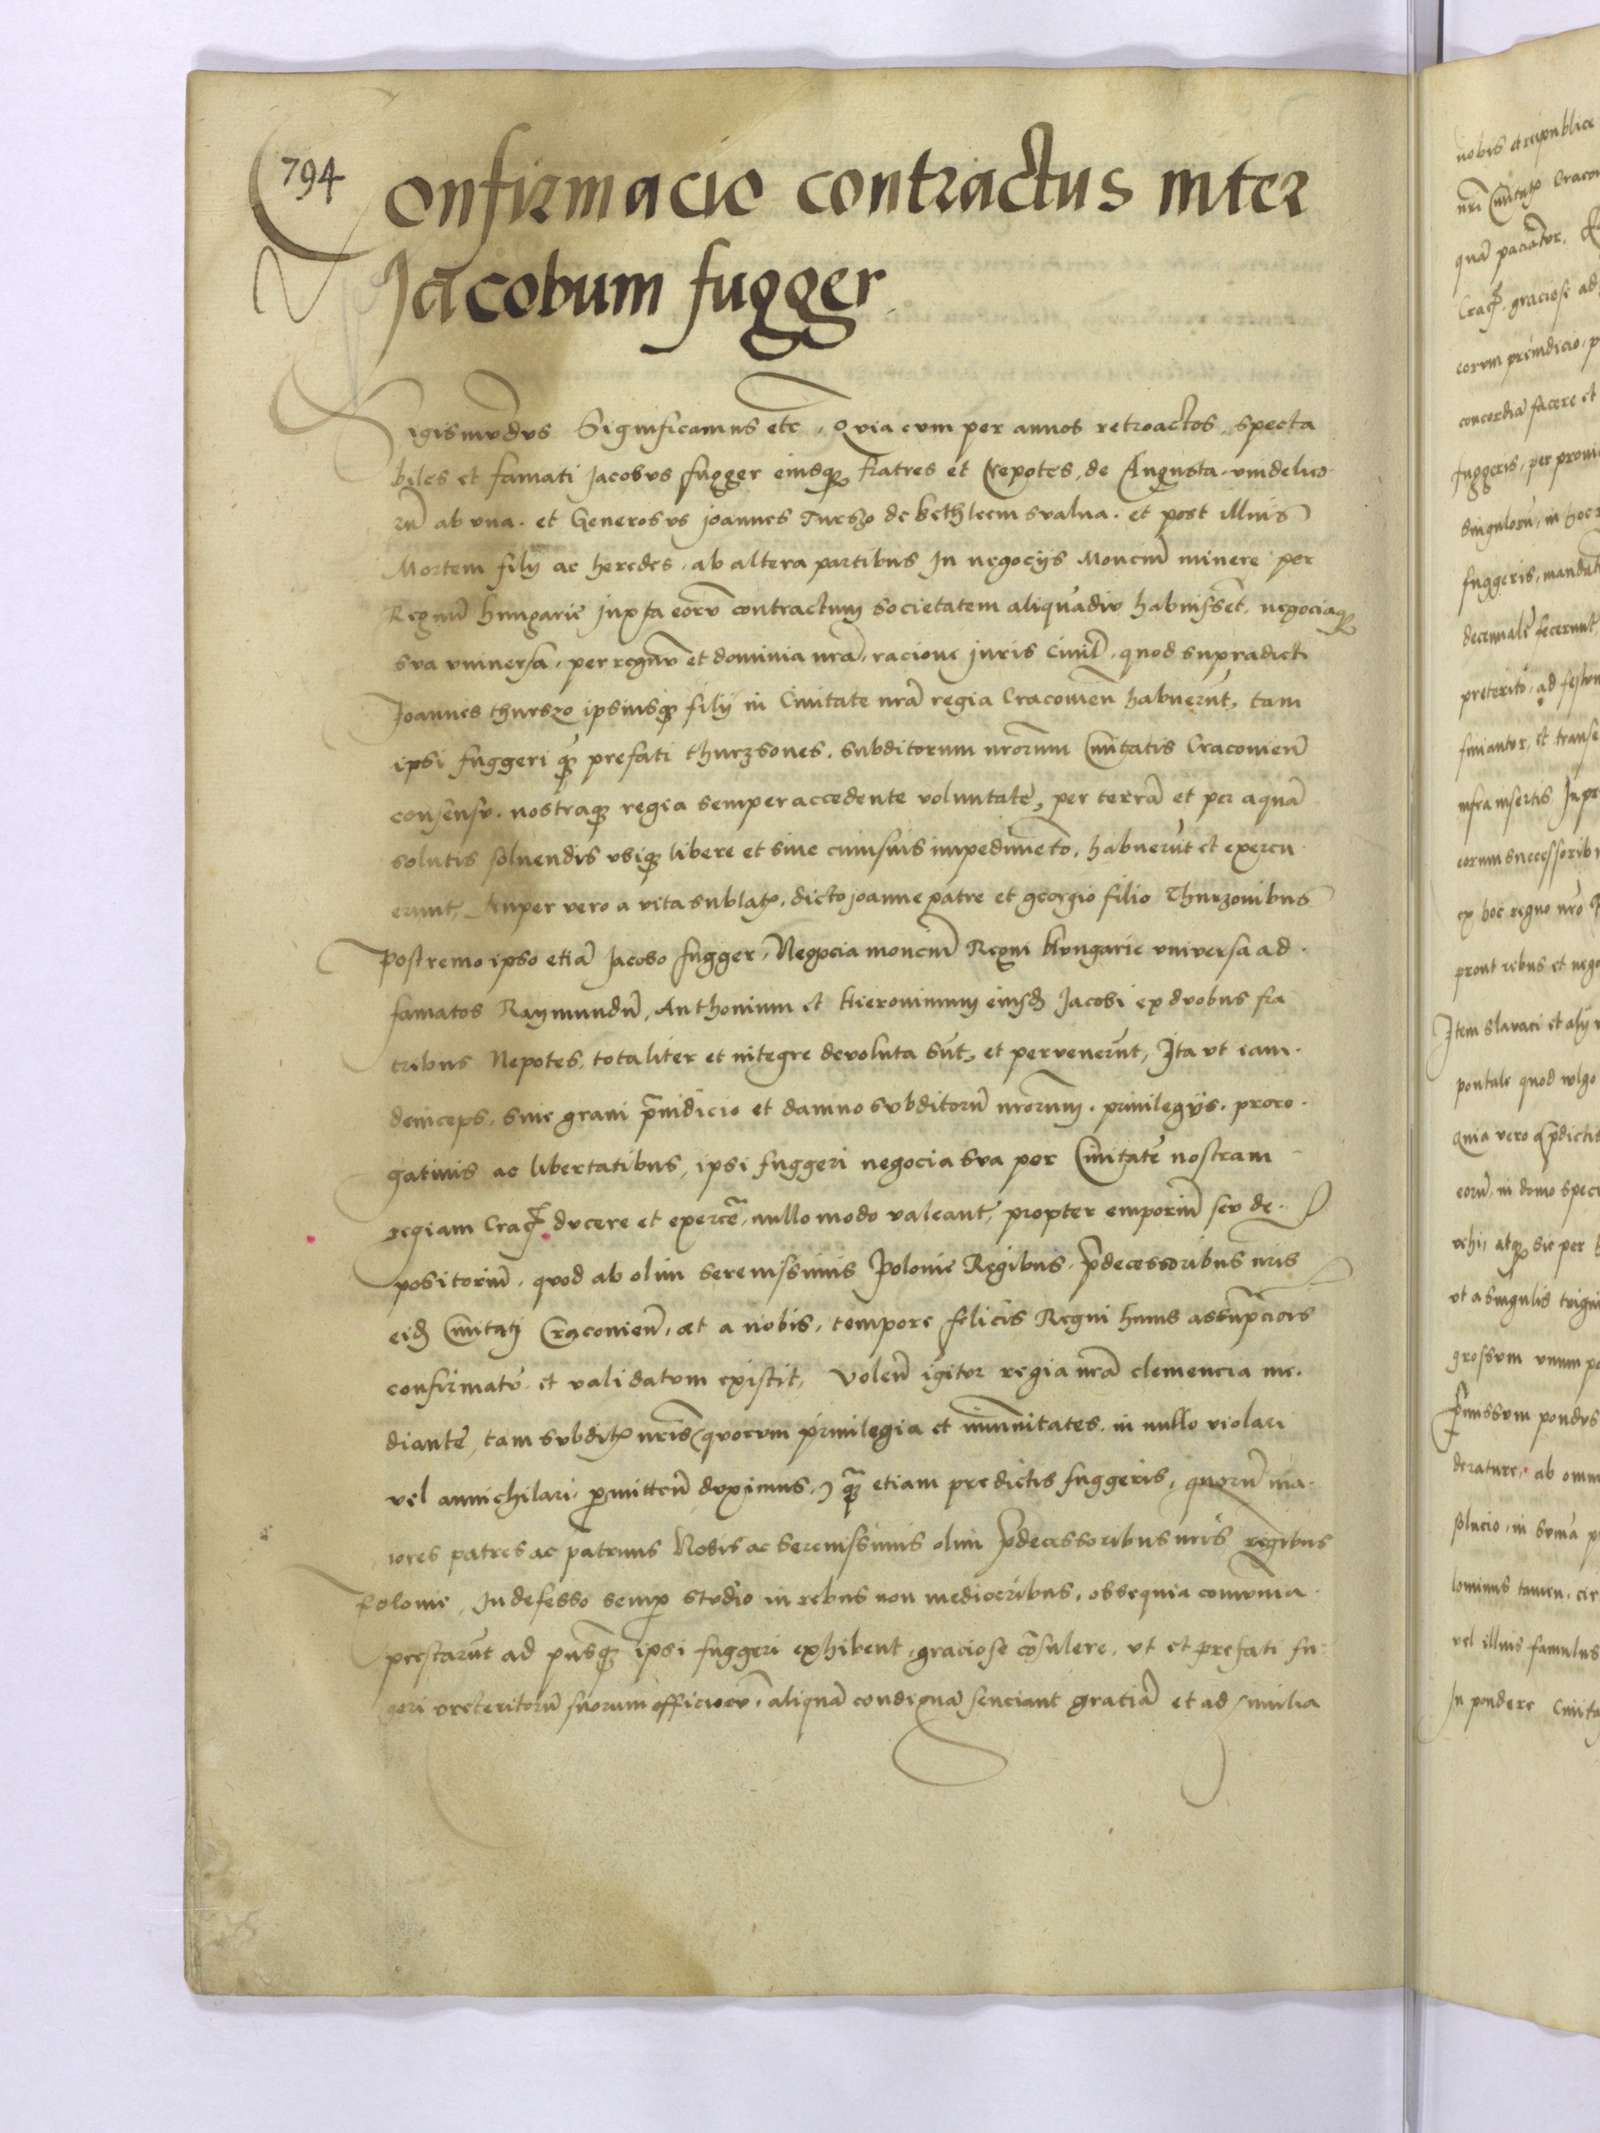 794
Confirmacio contractus inter
Jacobum fugger
Sigismūdus Significamus etc. Quia cum per annos retroactos, specta
biles et famati Jacobus fugger eiusq3 fratres et nepotes, de Augusta vindelico
rū ab vna. et Generosus joannes Turzo de bethleem svalua. et post illius
Mortem filij ac heredes, ab altera partibus In negocijs Monciū minere per
Regnū hungarie juxta eorū contractum societatem aliquādiu habuissēt, negociaq3
sua vniuersa, per regnū et dominia nrā, racione juris Ciuil, quod supradicti
Joannes thurszo ipsiusq3 filij in Ciuitate nrā regia Cracouieñ habuerūt, tam
ipsi fuggeri q3 prefati thurzsones. subditorum nrorum Ciuitatis Cracouieñ
consensu. nostraq3 regia semper accedente voluntate, per terrā et per aquā
solutis soluendis vsiq3 libere et sine cuiusuis impedimēto, habuerūt et exercu
erunt, nuper vero a vita sublatꝭ, dicto joanne patre et georgio filio Thurzonibus
postremo ipso etiā Jacobo fugger, Negocia monciū Regni Hungarie vniuersa ad
famatos Raymundū, Anthonium et Hieronimum eiusd̄ Jacobi ex duobus fra
tribus Nepotes, totaliter et integre deuoluta sūt, et peruenerūt, Ita vt iam
deinceps, sine graui p̄iudicio et damno subditorū nrorum. priuilegijs. prero
gatiuis ac libertatibus, ipsi fuggeri negocia sua per Ciuitatē nostram
regiam Crac̄ ducere et exercē, nullo modo valeant, propter emporiū seu de
positoriū, quod ab olim serenissimis Polonie Regibus. p̄decessoribus nris
eid̄ Ciuitati Cracouieñ, et a nobis, tempore felicis Regni huius assūpciōis
confirmatū et validatum existit, Voleñ igitur regia nrā clemencia me
diantē, tam subditꝭ nris quorum priuilegia et immūnitates. in nullo violari
vel annichilari p̄mitteñ duximus, q3 etiam predictis fuggeris, quorū ma
iores patres ac patruus Nobis ac serenissimis olim p̄decessoribus nris regibus
Polonie, Indefesso semp̄ studio in rebus non mediocribus, obsequia comūnia
prestarūt ad pñsq3 ipsi fuggeri exhibent, graciose cōsulere, vt et prefati fu
geri preteritorū suorum officiorū, aliquā condignā senciant gratiā et ad similia
nobis et reipublice
nri Ciuitatꝭ Craco
quā paciātur.
Crac̄. graciose ad
eorum preiudicio, p
concordiā facere et
fuggeris, per proui
singulorū, in hoc r
fuggeris, mandat
decennalē fecerunt
preterito, ad festum
finiantur, et transe
infra insertis. In pr
eorum successorib
ex hoc regno nro
prout rebus et nego
Item slauaci et alij
pontale quod vulgo
Quia vero p̄dictis
eorū, in domo spec
vehi, atq3 sic per
vt a singulis trigin
grossum vnum po
P̄missum pondus
deraturē, ab omn
solucio, in sum̄a p
lominus tamen, cir
vel illius famulus
In pondere Ciuita